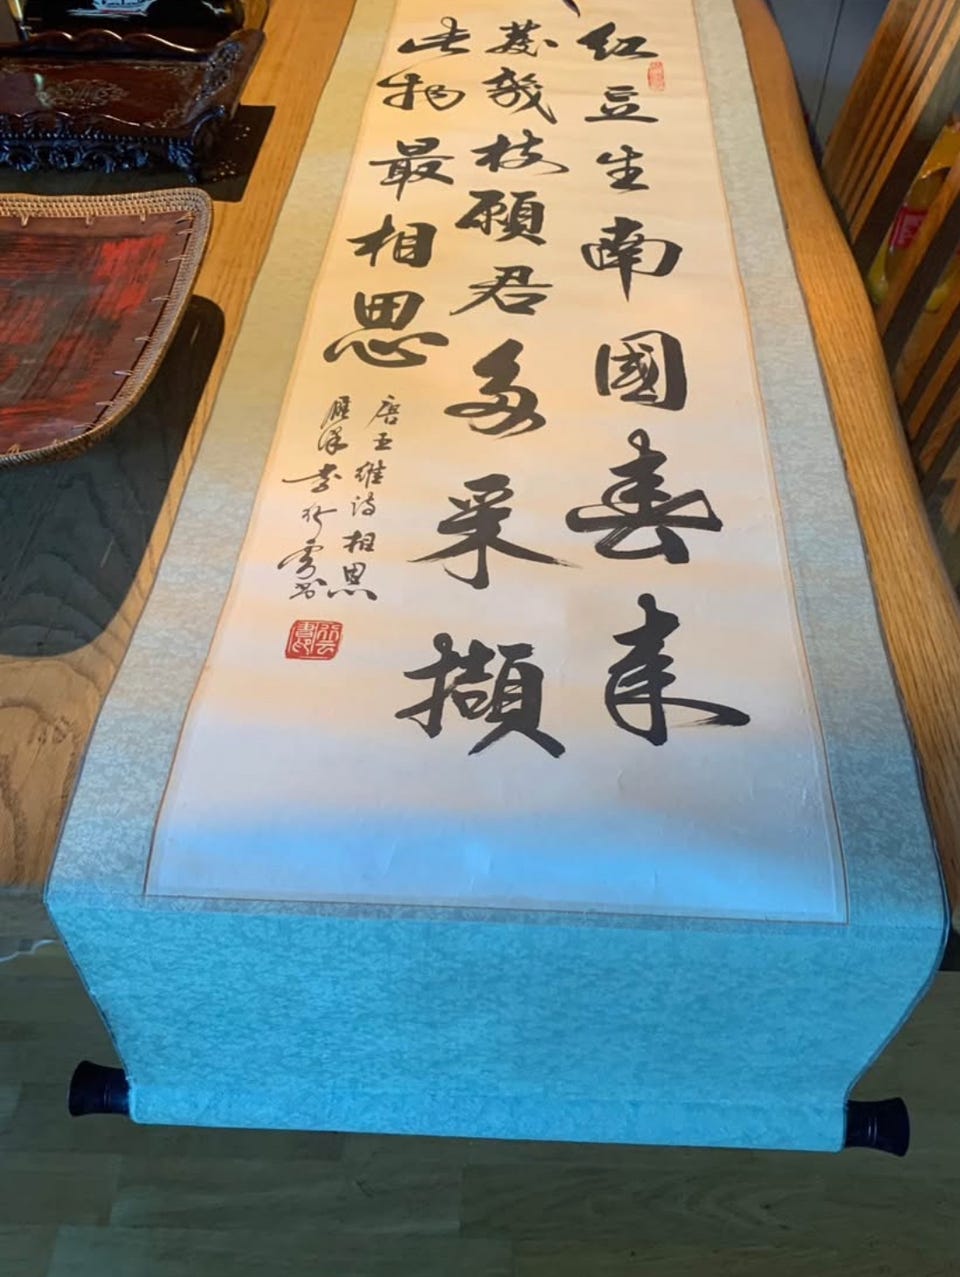 红豆生南國春来
發幾枝願君多采擷
此物最相思
唐王維诗相思
雁李行雲书
行云書印